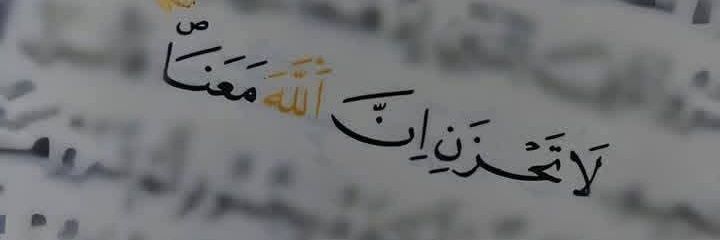 لَا تَحْزَنْ اِنَّ اللَّهَ مَعَنَا ۖ